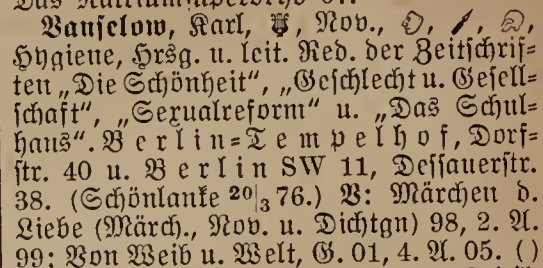 Vanselow, Karl, Nov.,
Hygiene, Hrsg. u. leit. Red. der Zeitschrif=
ten „Die Schönheit“, „Geschlecht u. Gesell=
schaft“, „Sexualreform“ u. „Das Schul=
haus“. Berlin=Tempelhof, Dorf=
str. 40 u. Berlin SW 11, Dessauerstr.
38. (Schönlanke 20|3 76.) V: Märchen d.
Liebe (Märch., Nov. u. Dichtgn) 98, 2. A.
99; Von Weib u. Welt, G. 01, 4. A. 05. ()